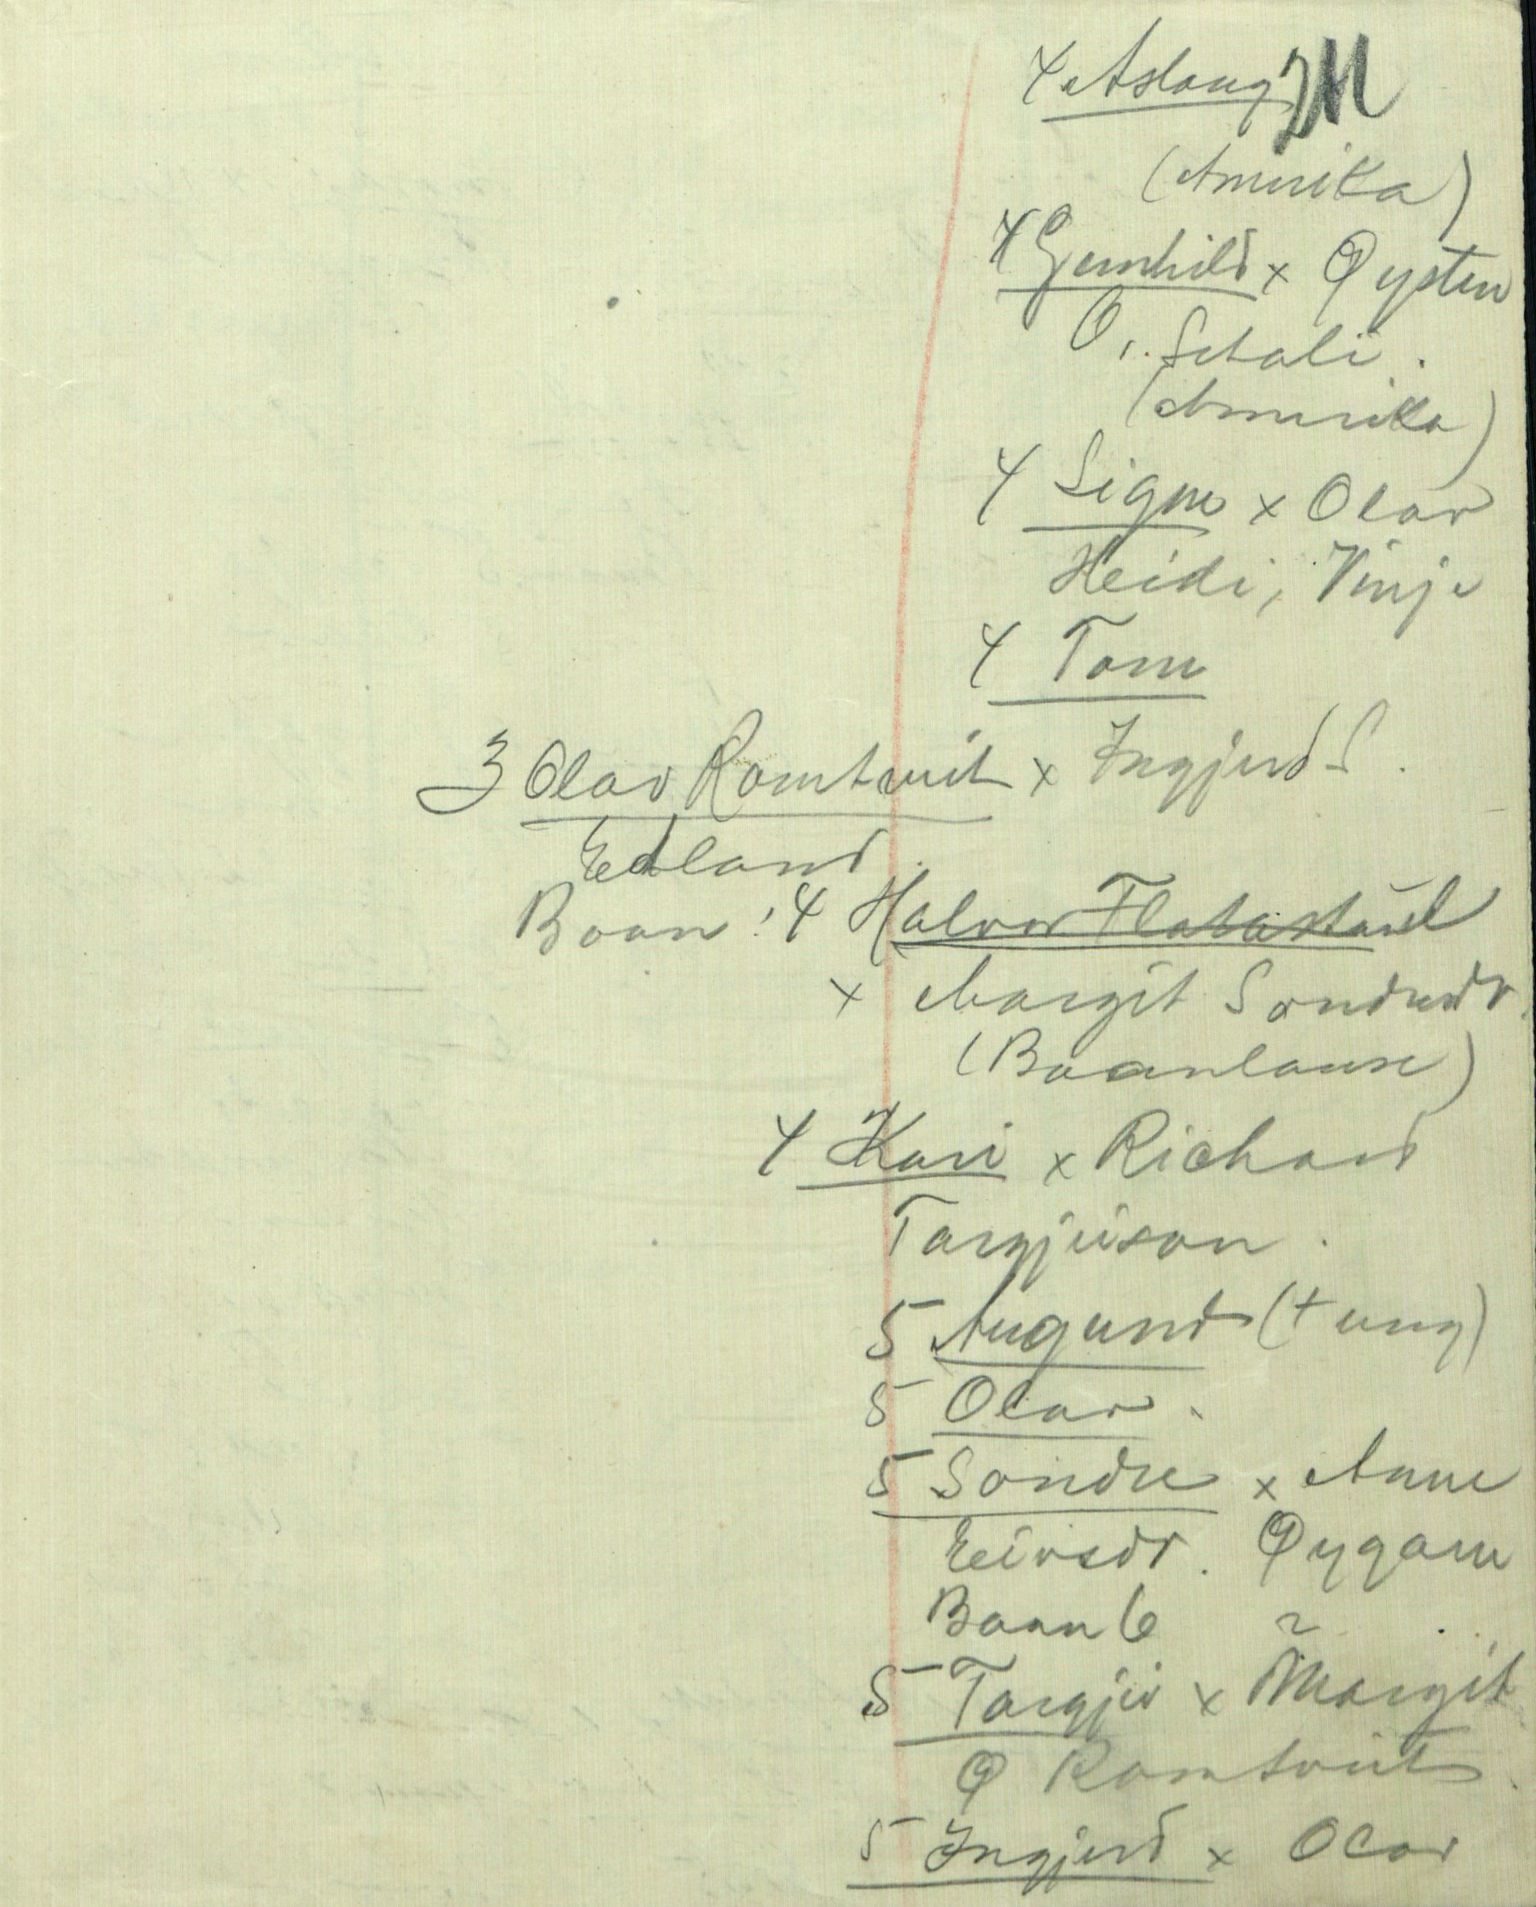 4 Aslaug 211
(Amerika)
4 Gunhild x Øysten
O. Setali.
(Amerika)
4 Signe x Olav
Heidi, Vinje
4 Tone
3 Olav Romtveit x Ingjerd S.
Edland.
Boan: 4 Halvor Flatastaul
x Margit Sondresdr.
(Boanlause)
4 Kari x Richard
Targjeison.
5 Augund (+ ung)
5 Olav.
5 Sondre x Anne
Eivsdr. Øygare
Boan 6
5 Targjei x Margit
Ø Romtveit.
5 Ingjerd x Olav